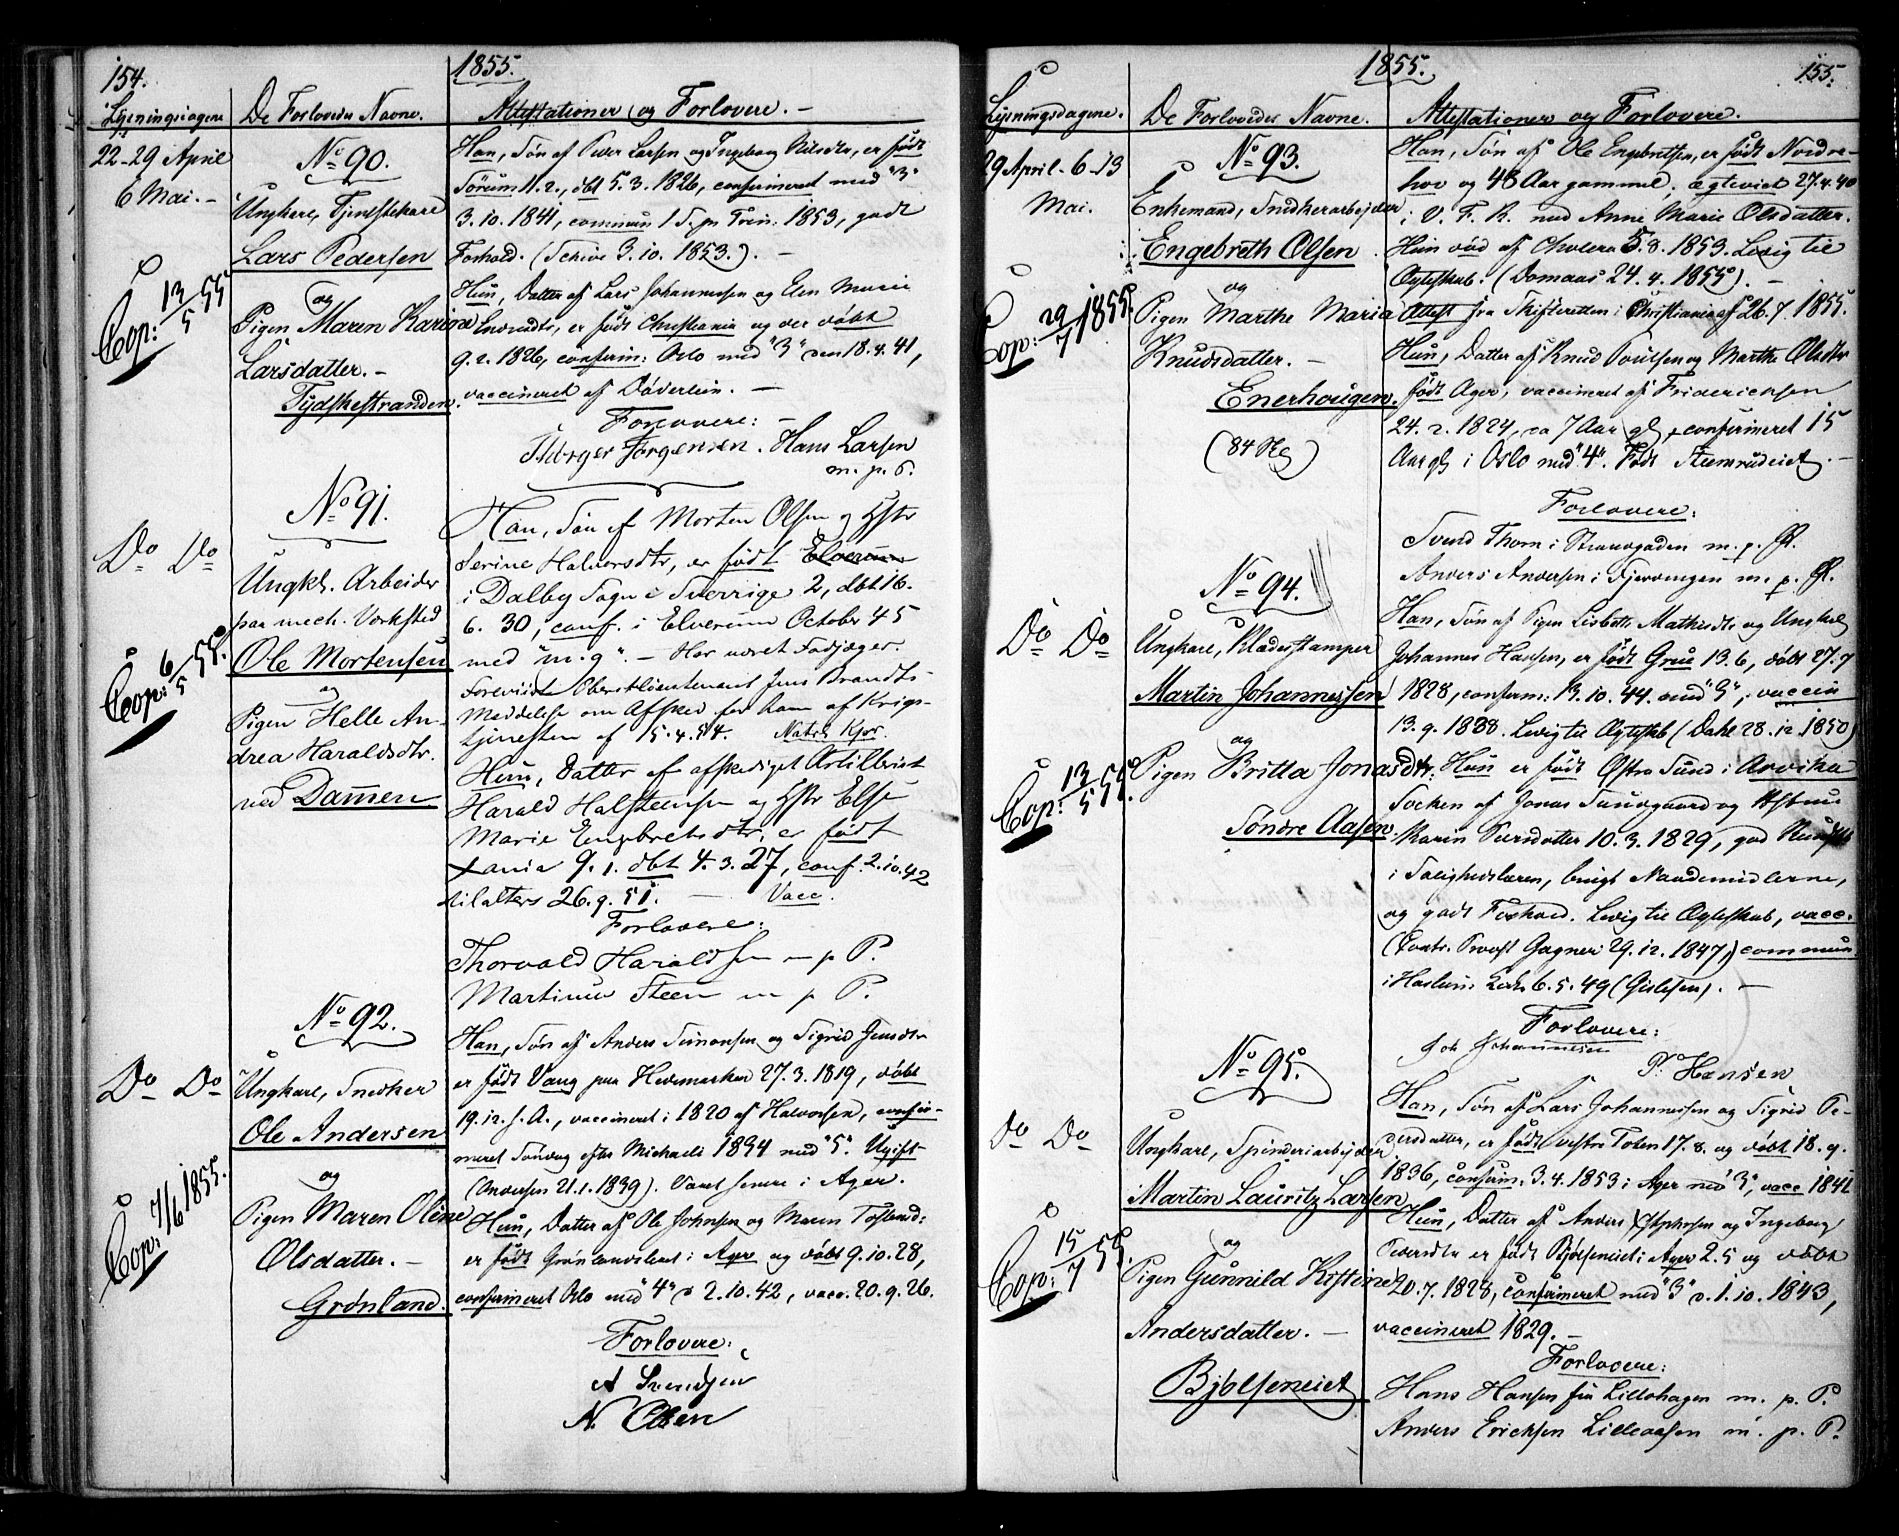 154.
1855.
Lysningsdagene
De Forlovedes Navne.
Attestationer og Forlovere. –
22-29 April
6 Mai. –
No 90.
Ungkarl, Tjenestekarl
Lars Pedersen
og
Pigen Maren Karine
Larsdatter. –
Tydskestranden.
Cop: 13/5 55
Han, Søn af Peder Larsen og Ingeborg Nilsdtr, er født
Sørum 11.2., dbt 5.3.1826, confirmeret med "3"
3.10.1841, commun 1 S. p. Trin: 1853, godt
Forhold. (Schive 3.10.1853.). –
Hun, Datter af Lars Johannessen og Elen Marie
er født Christiania og der døbt
9.2.1826, confirm: Oslo med "3" den 18.4.41,
vaccineret af Døderlein. –
Forlovere: –
Jørgensen. Hans Larsen
m. p. P.
No 91.
Do Do
Ungkl. Arbeider
paa mech. Værksted
Ole Mortensen
og
Pigen Helle An-
drea Haraldsdtr.
ved Dammen
Cop: 6/5 55.
Han, Søn af Morten Olsen og Hstr
Serine Halvorsdtr, er født Elverum
i Dalby Sogn i Sverrige 2, dbt 16.
6. 30, conf. i Elverum October 45
med "m.g". – Har været Fodjæger.
Foreviist Oberstlieutenant Jens Brandts
Meddelelse om Afsked for ham af Krigs-
tjenesten af 15.4.54.
Hun, Datter af afskediget Artillerist
Harald Halsteensen og Hstr Else
Marie Engebretsdtr, er født
Xania 9.1. dbt 4.3.27, conf. 2.10.42
tilalters 26.9.51. – Vacc.
Forlovere:
Thorvald Haraldsen m p P.
Martinus Steen m p P.
No 92.
Do Do
Ungkarl, Snedker
Ole Andersen
og
Pigen Maren Oline
Olsdatter. –
Grønland.
Cop: 7/6 1855.
Han, Søn af Anders Simonsen og Sigrid Jensdtr
er født Vang paa Hedemarken 27.3.1819, døbt
19.12. s. A., vaccineret i 1820 af Halvorsen, confir-
meret Søndag efter Michaeli 1834 med "5". Ugift –
(Andersen 21.1.1839). Været senere i Ager.
Hun, Datter af Ole Johnsen og Maren
er født Grønlandsleret i Ager og døbt 9.10.28,
confirmeret Oslo med "4" d 2.10.42, vacc. 20.9.26.
Forlovere:
A Svendsen
N. Olsen
1855.
155.
Lysningsdagene.
De Forlovedes Navne.
Attestationer og Forlovere.
29 April - 6-13
Mai.
No 93.
Enkemand, Snedkerarbeider
Engebreth Olsen
og
Pigen Marthe Maria
Knudsdatter. –
Enerhougen.
(84 )
Cop: 29/7 1855.
Han, Søn af Ole Engebretsen, er født Nordre-
hov og 48 Aar gammel, ægteviet 27.4.40
i V. F. K. med Anne Marie Olsdatter.
Hun død af Cholera 5.8.1853. Ledig til
Ægteskab. (Domaas 24.4.1855). –
Attest fra Skifteretten i Christiania af 26.7.1855.
Hun, Datter af Knud Poulsen og Marthe Olsdtr
født Ager, vaccineret af Friderichsen
24.2.1824, ca 7 Aar gl, confirmeret 15
Aar gl i Oslo med "4". Født Steenrudeiet. –
Forlovere:
Svend Thom i Storegaden m. p. P.
Anders Andersen i Fjerdingen m. p. P.
No 94.
Do Do
Ungkarl, Klædesstamper
Martin Johannessen
og
Pigen Britta Jonasdtr.
Søndre Aasen
Cop: 13/5 55.
Han, Søn af Pigen Lisbeth Mathisdtr og Ungkarl
Johannes Hansen, er født Grue 13.6, døbt 27.7
1828, confirm: 13.10.44 med "3", vaccin
13.9.1838. Ledig til Ægteskab (Dahl 28.12.1850)
Hun er født Østra Sund i Arvika
Socken af Jonas Sunesgaard og Hstru
Karin Persdatter 10.3.1829, god Kundskab
i Saligheslæren, brugt Naademidlerne,
og godt Forhold. Ledig til Ægteskab, vacc.
(Contr. Provst Gagner 29.12.1847,) commun.
i Haslum Kirke 6.5.49 (Gislesen). –
Forlovere:
Joh Johannesen
P. Hansen
No 95.
Do Do
Ungkarl, Spinderiarbeider
Martin Lauritz Larsen
og
Pigen Gunnild Kristine
Andersdatter. –
Bjølseneiet
Cop: 15/7 55.
Han, Søn af Lars Johannessen og Sigrid Pe-
dersdatter, er født vestre Toten 17.8. og døbt 18.9.
1836, confirm. 3.4.1853 i Ager med "3", vacc 1841
Hun, Datter af Anders Stephensen og Ingeborg
Pedersdtr er født Bjølseneiet i Ager 2.5 og døbt
20.7.1828, confirmeret med "3" d. 1.10.1843,
vaccineret 1829. –
Forlovere:
Hans Hansen fra Lillohagen m. p. P.
Anders Ericksen Lilleaasen m. p. P.